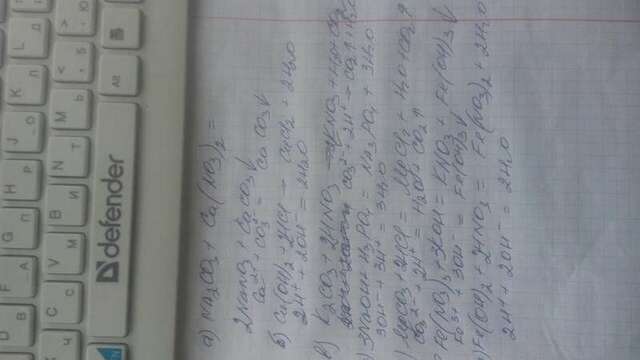 а) Na2CO3 + Ca(NO3)2 =
2NaNO3 + CaCO3↓
Ca2+ + CO3 2- = CaCO3↓
б) Ca(OH)2 + 2HCl - CaCl2 + 2H2O
2H+ + 2OH- = 2H2O
в) K2CO3 + 2HNO3 - 2KNO3 + H2O + CO2
CO3 2- + 2H+ - CO2↑ + H2O
3NaOH + H3PO4 = Na3PO4 + 3H2O
3OH- + 3H+ = 3H2O
MgCO3 + 2HCl = MgCl2 + H2O + CO2↑
CO3 2- + 2H+ = H2O + CO2↑
Fe(NO3)3 + 3KOH = KNO3 + Fe(OH)3↓
Fe3+ + 3OH- = Fe(OH)3↓
Fe(OH)2 + 2HNO3 = Fe(NO3)2 + 2H2O
2H+ + 2OH- = 2H2O
defender
Alt